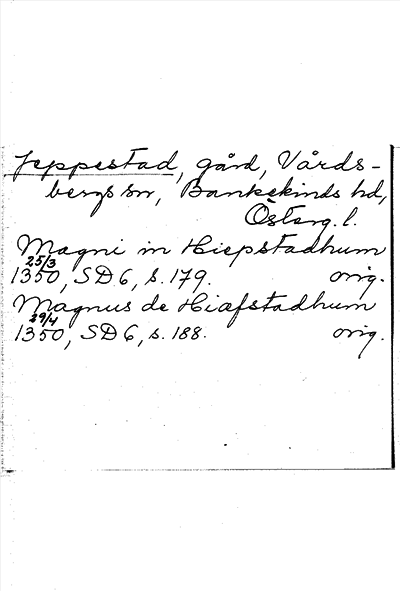 Jeppestad, gård, Vårds-
bergs sn, Bankekinds hd,
Österg. l.
Magni in Hiepstadhum
25/3
1350, SD 6, s. 179. orig.
Magnus de Hiafstadhum
29/4
1350, SD 6, s. 188. orig.